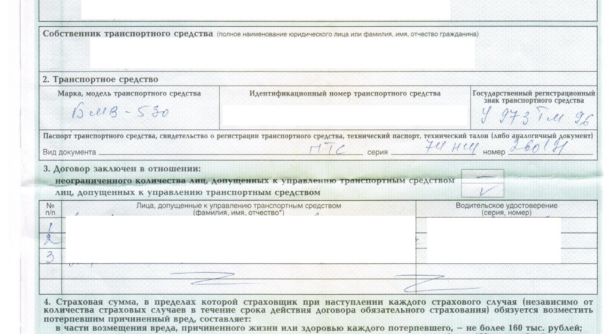 Собственник транспортного средства (полное наименование юридического лица или фамилия, имя, отчество гражданина)
2. Транспортное средство
Марка, модель транспортного средства
Идентификационный номер транспортного средства
Государственный регистрационный
знак транспортного средства
БМВ-530
У 973 ТМ 96
Паспорт транспортного средства, свидетельство о регистрации транспортного средства, технический паспорт, технический талон (либо аналогичный документ)
Вид документа ПТС серия номер
3. Договор заключен в отношении:
неограниченного количества лиц, допущенных к управлению транспортным средством —
лиц, допущенных к управлению транспортным средством V
№
п/п
Лица, допущенные к управлению транспортным средством
(фамилия, имя, отчество*)
Водительское удостоверение
(серия, номер)
1
2
3
4. Страховая сумма, в пределах которой страховщик при наступлении каждого страхового случая (независимо от
количества страховых случаев в течение срока действия договора обязательного страхования) обязуется возместить
потерпевшим причиненный вред, составляет:
в части возмещения вреда, причиненного жизни или здоровью каждого потерпевшего, – не более 160 тыс. рублей;